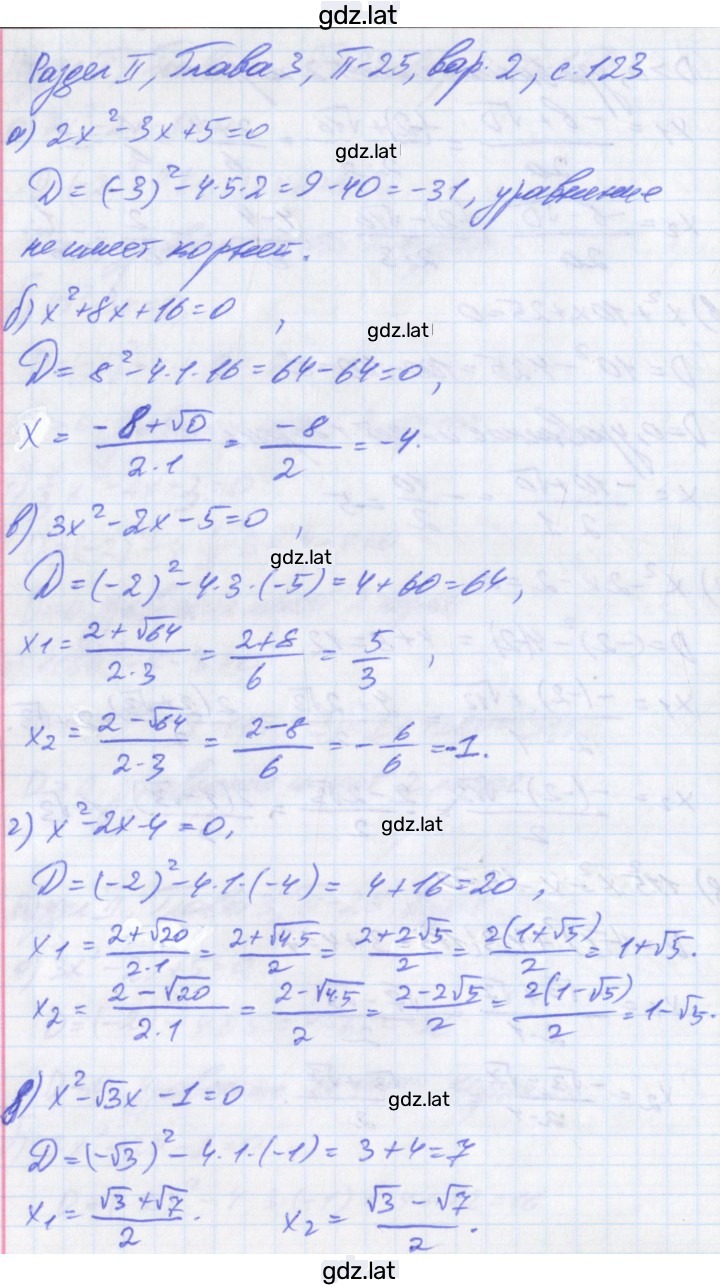 gdz.lat
Раздел II, Глава 3, П-25, вар. 2, с. 123
а) 2x² - 3x + 5 = 0
gdz.lat
D = (-3)² - 4·5·2 = 9 - 40 = -31, уравнение
не имеет корней.
б) x² + 8x + 16 = 0 ,
gdz.lat
D = 8² - 4·1·16 = 64 - 64 = 0,
x = (-8 + √0)/(2·1) = (-8)/2 = -4.
в) 3x² - 2x - 5 = 0 ,
gdz.lat
D = (-2)² - 4·3·(-5) = 4 + 60 = 64,
x1 = (2 + √64)/(2·3) = (2+8)/6 = 5/3 ,
x2 = (2 - √64)/(2·3) = (2-8)/6 = -6/6 = -1.
г) x² - 2x - 4 = 0,
gdz.lat
D = (-2)² - 4·1·(-4) = 4 + 16 = 20 ,
x1 = (2 + √20)/(2·1) = (2 + √4·5)/2 = (2 + 2√5)/2 = 2(1 + √5)/2 = 1 + √5.
x2 = (2 - √20)/(2·1) = (2 - √4·5)/2 = (2 - 2√5)/2 = 2(1 - √5)/2 = 1 - √5.
д) x² - √3x - 1 = 0
gdz.lat
D = (-√3)² - 4·1·(-1) = 3 + 4 = 7
x1 = (√3 + √7)/2 . x2 = (√3 - √7)/2 .
gdz.lat